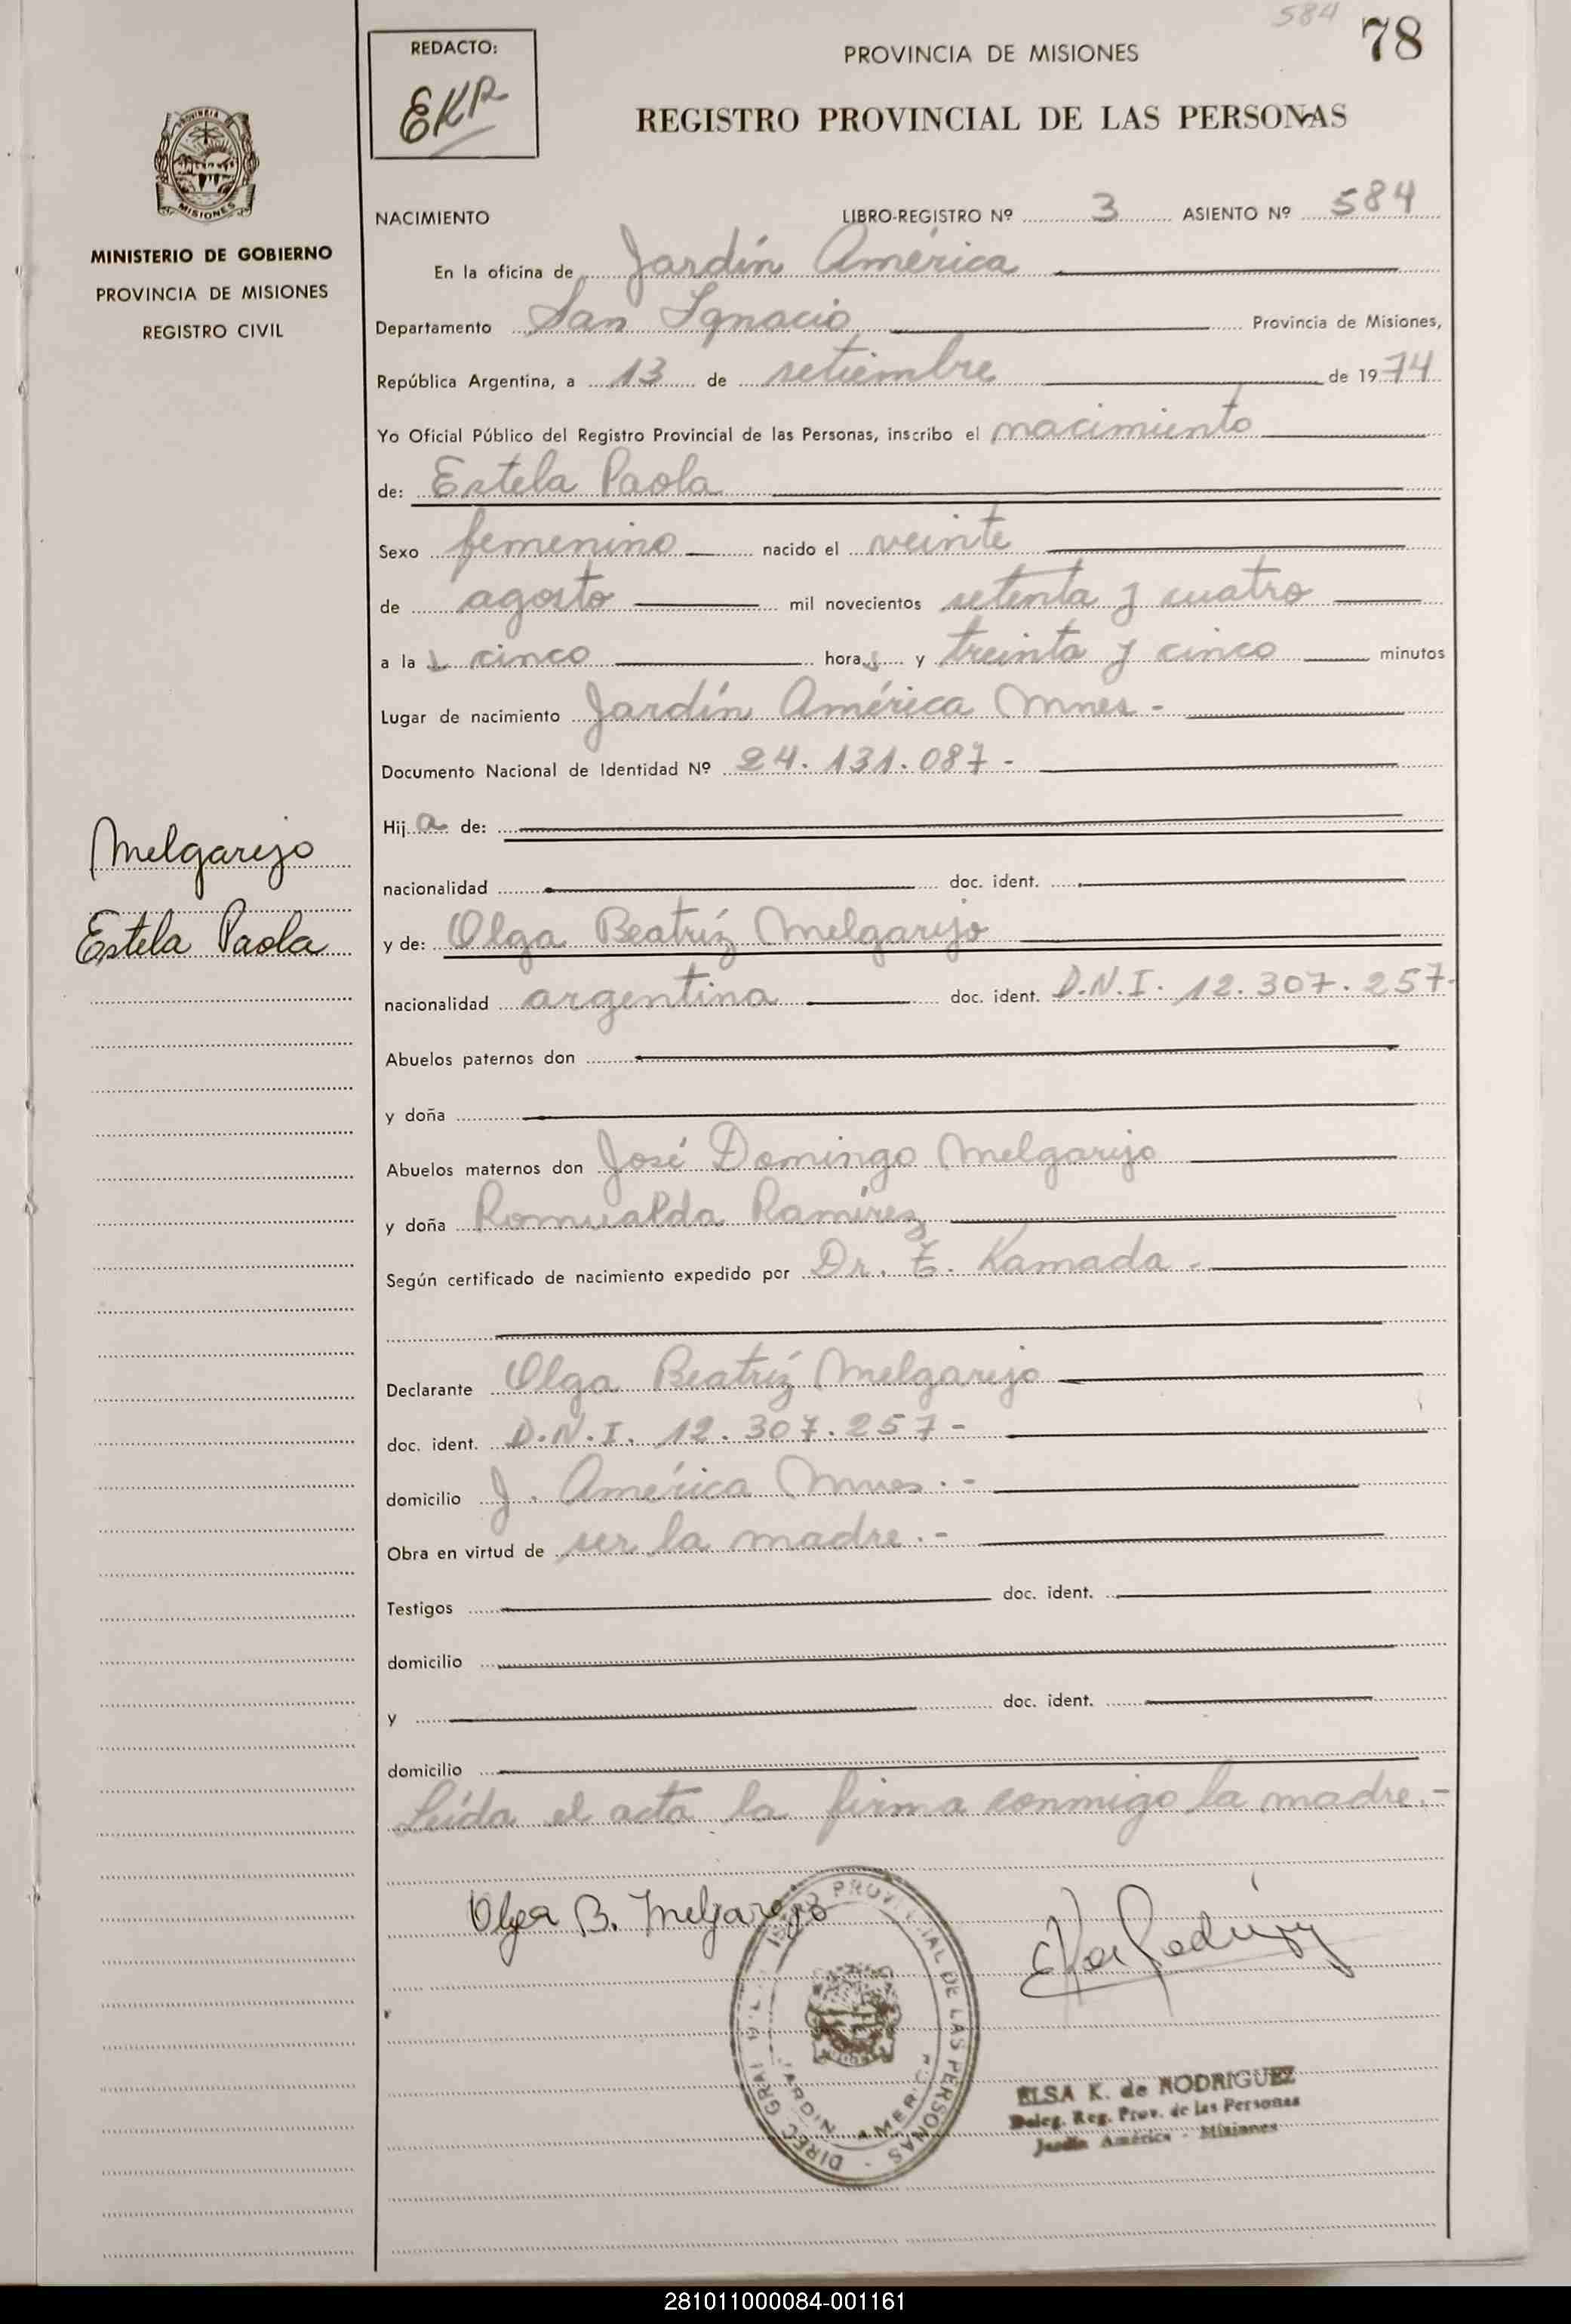 584
78
REDACTO:
EKR
PROVINCIA DE MISIONES
REGISTRO PROVINCIAL DE LAS PERSONAS
MISIONES
MINISTERIO DE GOBIERNO
PROVINCIA DE MISIONES
REGISTRO CIVIL
NACIMIENTO LIBRO-REGISTRO Nº 3 ASIENTO Nº 584
En la oficina de Jardín América
Departamento San Ignacio Provincia de Misiones,
República Argentina, a 13 de setiembre de 1974
Yo Oficial Público del Registro Provincial de las Personas, inscribo el nacimiento
de: Estela Paola
Sexo femenino nacido el veinte
de agosto mil novecientos setenta y cuatro
a las cinco horas y treinta y cinco minutos
Lugar de nacimiento Jardín América Mnes -
Documento Nacional de Identidad Nº 24.131.087 -
Hija de:
nacionalidad doc. ident.
Melgarejo
Estela Paola
y de: Olga Beatríz Melgarejo
nacionalidad argentina doc. ident. D.N.I. 12.307.257-
Abuelos paternos don
y doña
Abuelos maternos don José Domingo Melgarejo
y doña Romualda Ramírez
Según certificado de nacimiento expedido por Dr. E. Kamada -
Declarante Olga Beatríz Melgarejo
doc. ident. D.N.I. 12.307.257 -
domicilio J. América Mnes. -
Obra en virtud de ser la madre. -
Testigos doc. ident.
domicilio
y doc. ident.
domicilio
Leída el acta la firma conmigo la madre. -
Olga B. Melgarejo
DIREC GRAL PROVINCIAL DE LAS PERSONAS -
JARDIN AMERICA
ELSA K. de RODRIGUEZ
Deleg. Reg. Prov. de las Personas
Jardín América - Misiones
281011000084-001161